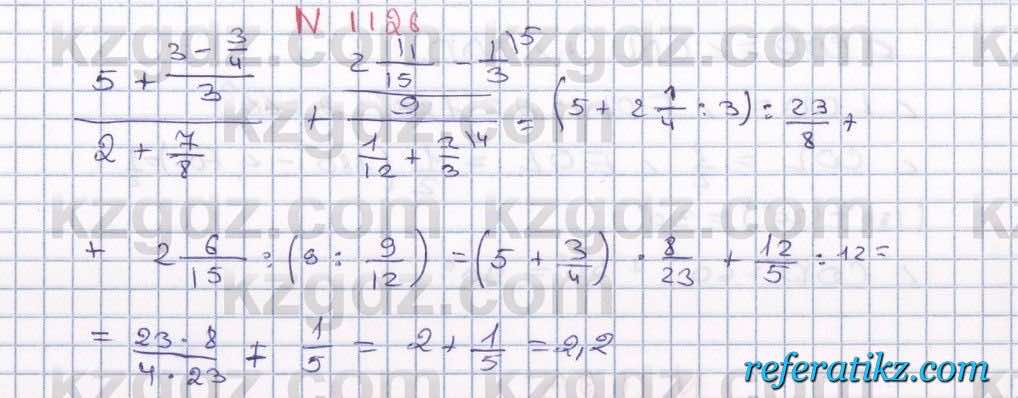 N 1126
(5 + (3 - 3/4)/3)/(2 + 7/8) + (2 11/15 - 1/3 \5)/(9/(1/12 + 2/3 \4)) = (5 + 2 1/4 : 3) : 23/8 +
+ 2 6/15 : (9 : 9/12) = (5 + 3/4) · 8/23 + 12/5 : 12 =
= 23 · 8/4 · 23 + 1/5 = 2 + 1/5 = 2,2
kzgdz.com
referatikz.com